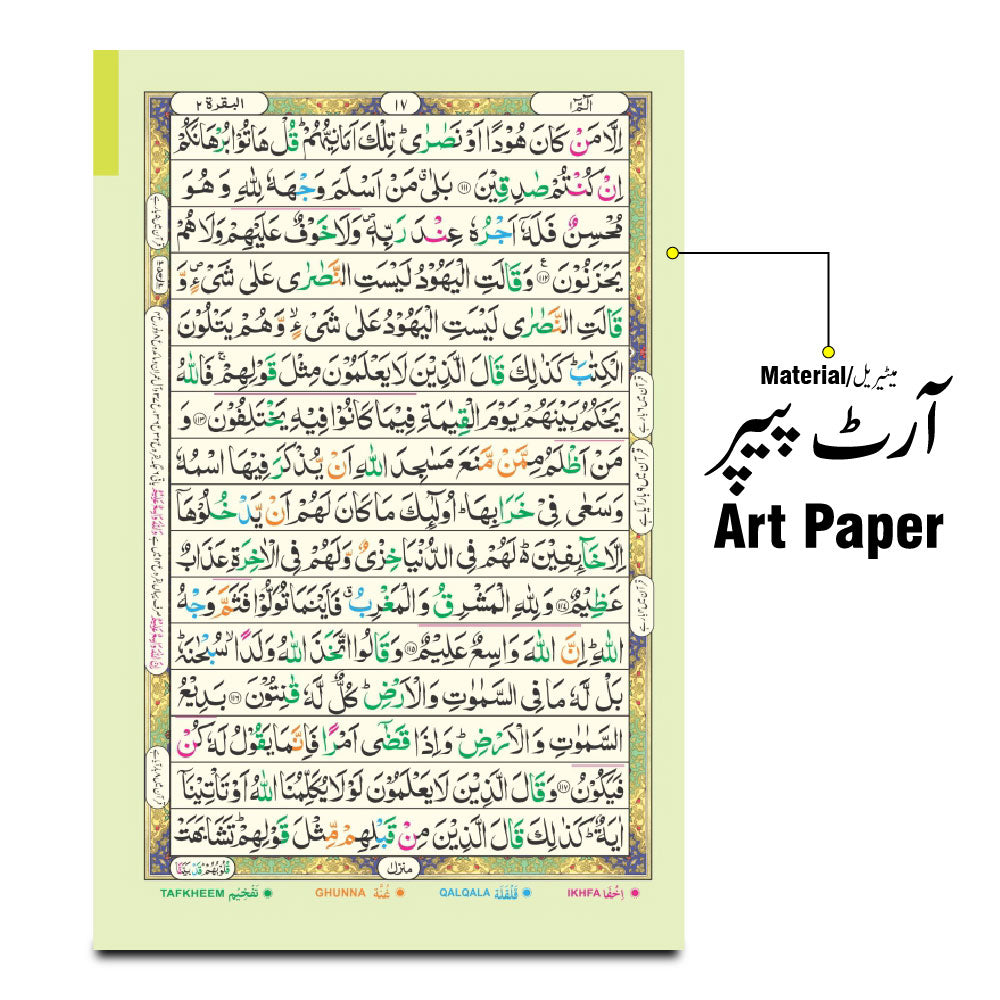 الٓمّٓ ۱
۱۷
البقرة ۲
اِلَّا مَنْ كَانَ هُوْدًا اَوْ نَصٰرٰى ؕ تِلْكَ اَمَانِيُّهُمْ ؕ قُلْ هَاتُوْا بُرْهَانَكُمْ
اِنْ كُنْتُمْ صٰدِقِيْنَ ۝۱۱۱ بَلٰى ۗ مَنْ اَسْلَمَ وَجْهَهٗ لِلّٰهِ وَ هُوَ
مُحْسِنٌ فَلَهٗۤ اَجْرُهٗ عِنْدَ رَبِّهٖ ۪ وَلَا خَوْفٌ عَلَيْهِمْ وَلَا هُمْ
يَحْزَنُوْنَ ۝۱۱۲ ع وَقَالَتِ الْيَهُوْدُ لَيْسَتِ النَّصٰرٰى عَلٰى شَیْءٍ ۪ وَّ
قَالَتِ النَّصٰرٰى لَيْسَتِ الْيَهُوْدُ عَلٰى شَیْءٍ ۙ وَّهُمْ يَتْلُوْنَ
الْكِتٰبَ ؕ كَذٰلِكَ قَالَ الَّذِيْنَ لَا يَعْلَمُوْنَ مِثْلَ قَوْلِهِمْ ۚ فَاللّٰهُ
يَحْكُمُ بَيْنَهُمْ يَوْمَ الْقِيٰمَةِ فِيْمَا كَانُوْا فِيْهِ يَخْتَلِفُوْنَ ۝۱۱۳ وَ
مَنْ اَظْلَمُ مِمَّنْ مَّنَعَ مَسٰجِدَ اللّٰهِ اَنْ يُّذْكَرَ فِيْهَا اسْمُهٗ
وَسَعٰى فِیْ خَرَابِهَا ؕ اُولٰٓئِكَ مَا كَانَ لَهُمْ اَنْ يَّدْخُلُوْهَاۤ
اِلَّا خَآئِفِيْنَ ؕ۬ لَهُمْ فِی الدُّنْيَا خِزْیٌ وَّلَهُمْ فِی الْاٰخِرَةِ عَذَابٌ
عَظِيْمٌ ۝۱۱۴ وَلِلّٰهِ الْمَشْرِقُ وَالْمَغْرِبُ ۗ فَاَيْنَمَا تُوَلُّوْا فَثَمَّ وَجْهُ
اللّٰهِ ؕ اِنَّ اللّٰهَ وَاسِعٌ عَلِيْمٌ ۝۱۱۵ وَقَالُوا اتَّخَذَ اللّٰهُ وَلَدًا ۙ سُبْحٰنَهٗ ؕ
بَلْ لَّهٗ مَا فِی السَّمٰوٰتِ وَالْاَرْضِ ؕ كُلٌّ لَّهٗ قٰنِتُوْنَ ۝۱۱۶ بَدِيْعُ
السَّمٰوٰتِ وَالْاَرْضِ ؕ وَاِذَا قَضٰۤى اَمْرًا فَاِنَّمَا يَقُوْلُ لَهٗ كُنْ
فَيَكُوْنُ ۝۱۱۷ وَقَالَ الَّذِيْنَ لَا يَعْلَمُوْنَ لَوْلَا يُكَلِّمُنَا اللّٰهُ اَوْ تَاْتِيْنَاۤ
اٰيَةٌ ؕ كَذٰلِكَ قَالَ الَّذِيْنَ مِنْ قَبْلِهِمْ مِّثْلَ قَوْلِهِمْ ؕ تَشَابَهَتْ
منزل
قُلُوْبُهُمْ ؕ قَدْ بَيَّنَّا
TAFKHEEM تَفْخِيْم
GHUNNA غُنَّة
QALQALA قَلْقَلَة
IKHFA اِخْفَا
Material/میٹیریل
آرٹ پیپر
Art Paper